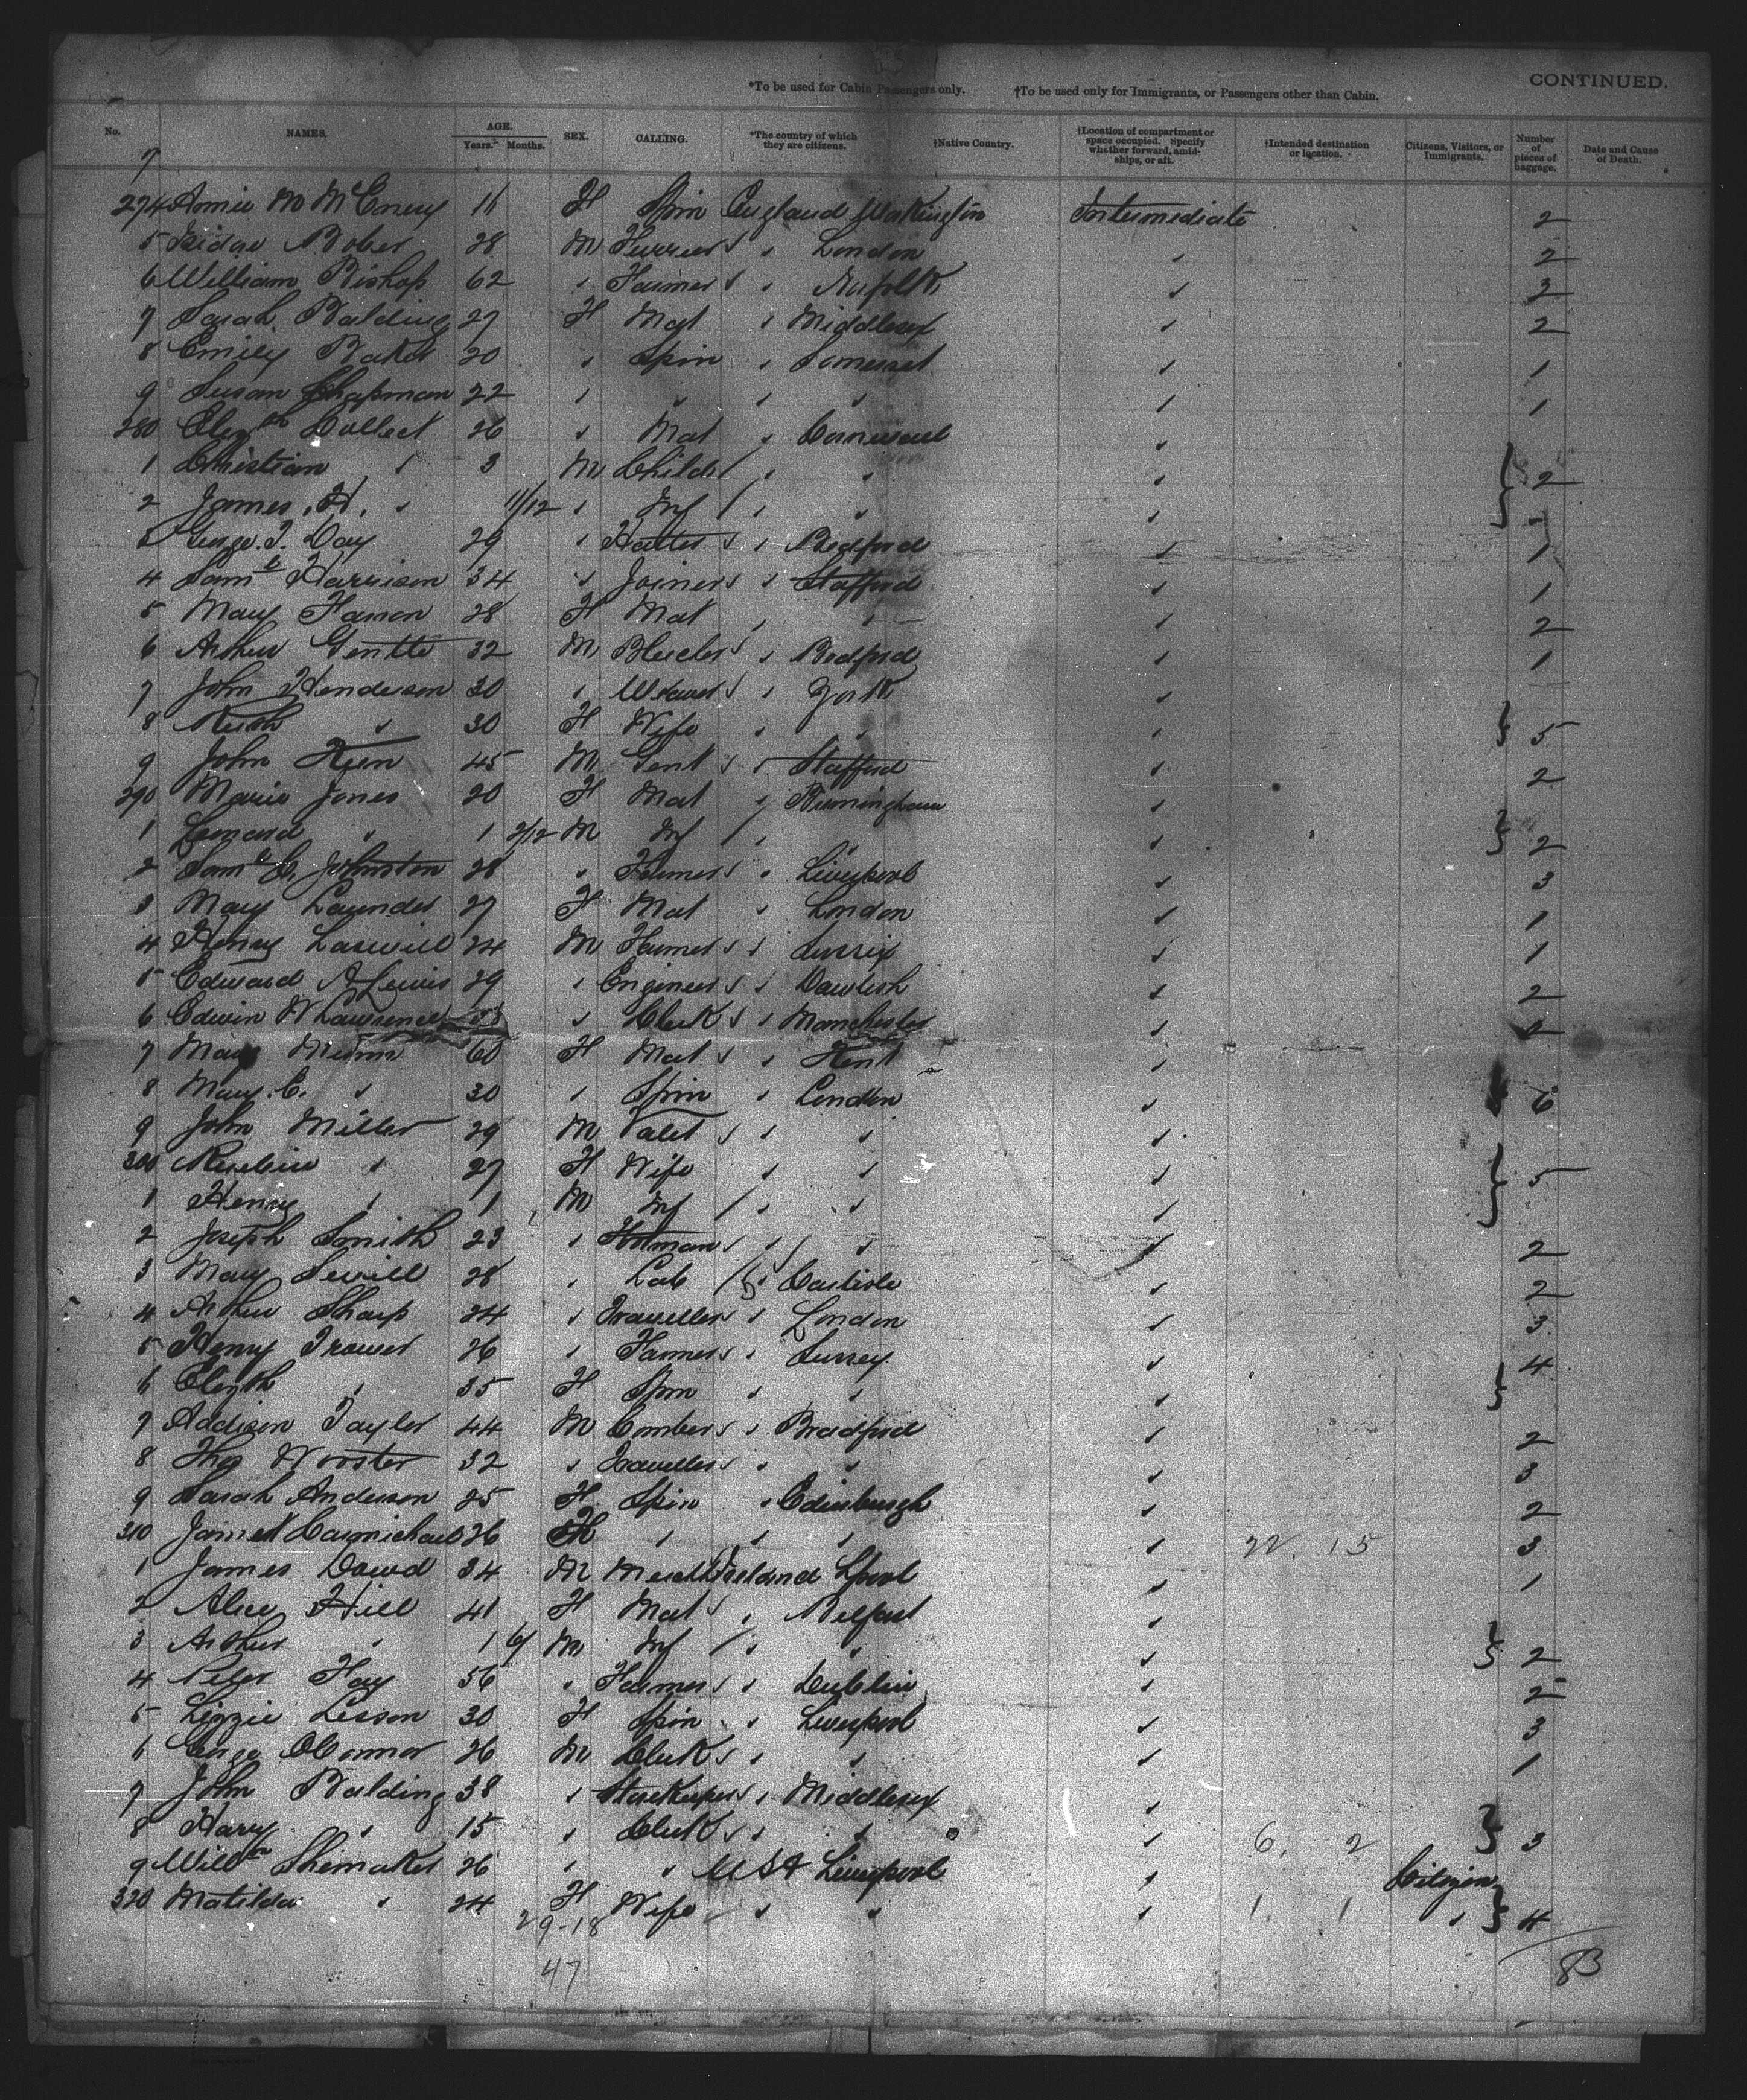 CONTINUED.
*To be used for Cabin Passengers only. †To be used only for Immigrants, or Passengers other than Cabin.
No. NAMES. AGE. Years. Months. SEX. CALLING. *The country of which they are citizens. †Native Country. †Location of compartment or space occupied. Specify whether forward, amidships, or aft. †Intended destination or location. Citizens, Visitors, or Immigrants. Number of pieces of baggage. Date and Cause of Death.
274 Annie M McEnery 11 F Spin England Workington Intermediate 2
5 Isidor Bober 28 M Furrier " London " 2
6 William Bishop 62 " Farmer " Norfolk " 2
7 Sarah Balding 27 F Mat " Middlesex " 2
8 Emily Baker 20 " Spin " Somerset " 1
9 Susan Chapman 22 " " " " " 1
280 Elizth 26 " Mat " Cornwall "
1 Christian " 3 M Child " " " 2
2 James H. " 11/12 " Inf " " "
3 George T. Day 29 " Hatter " Bedford " 1
4 Saml Harrison 34 " Joiner " Stafford " 1
5 Mary 28 F Mat " " " 2
6 Arthur Gentle 32 M " Bedford " 1
7 John Henderson 30 " Weaver " York "
8 Ruth " 30 F Wife " " " 5
9 John 45 M Gent " Stafford " 2
290 Marie Jones 20 F Mat " Birmingham "
1 Leonard " 1 2/12 M Inf " " " 2
2 Saml C. Johnston 28 " Farmer " Liverpool " 3
3 Mary Launder 27 F Mat " London " 1
4 Henry 24 M Farmer " Sussex " 1
5 Edward A Lewis 29 " Engineer " Dawlish " 2
6 Edwin W Lawrence " Clerk " Manchester " 2
7 Mary Munn 60 F Mat " Kent "
8 Mary C. " 30 " Spin " London " 6
9 John Miller 29 M Valet " " "
300 " 27 F Wife " " " 5
1 Henry " 1 M Inf " " "
2 Joseph Smith 23 " " " " 2
3 Mary Sewell 28 " Lab " Carlisle " 2
4 Arthur Sharp 24 " Traveller " London " 3
5 Henry Trower 26 " Farmer " Surrey " 4
6 Elizth " 35 F Spin " " "
7 Addison Taylor 44 M Comber " Bradford " 2
8 Thos Wooster 32 " Traveller " " " 3
9 Sarah Anderson 25 F Spin " Edinburgh " 2
310 Janet Carmichael 26 F " " " " 22. 15 3
1 James Dowd 34 M Ireland Lpool " 1
2 Alice Hill 41 F Mat " Belfast "
3 Arthur " 1 6/ M Inf " " " 2
4 Peter Fay 56 " Farmer " Dublin " 2
5 Lizzie Lesson 30 F Spin " Liverpool " 3
6 George OConnor 26 M Clerk " " " 1
7 John Balding 38 " Storekeeper " Middlesex "
8 Harry " 15 " Clerk " " " 6. 2 3
9 Willm Shemaker 26 " " USA Liverpool " Citizen
320 Matilda " 24 F Wife " " " 1. 1 " 4
29-18
47
83